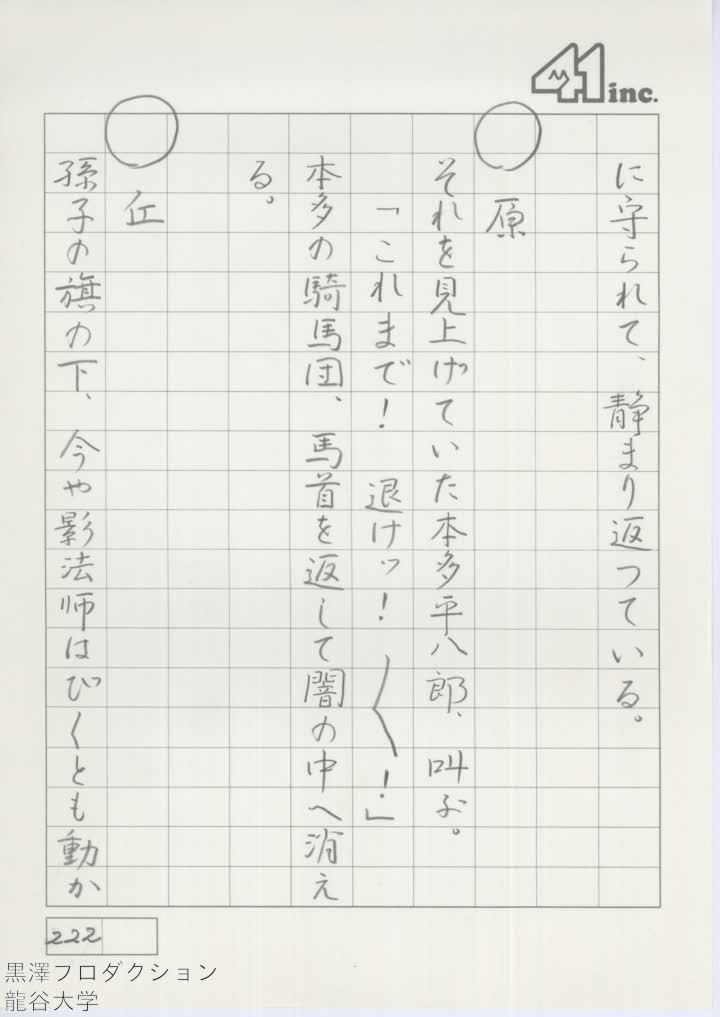 41 inc.
に守られて、静まり返つている。
◯ 原
それを見上げていた本多平八郎、叫ぶ。
「これまで！　退けッ！　〱！」
本多の騎馬団、馬首を返して闇の中へ消え
る。
◯ 丘
孫子の旗の下、今や影法師はびくとも動か
222
黒澤フロダクション
龍谷大学